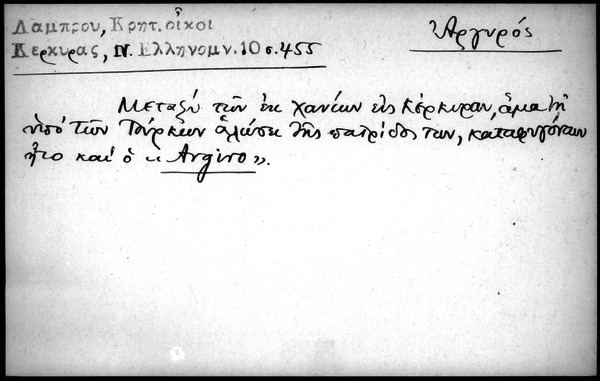 Λαμπρου, Κρητ.οἶκοι
Κερκυρας, Ν. Ελληνομν.10 σ.455
Ἀργυρός
Μεταξύ τῶν ἐκ Χανίων εἰς Κέρκυραν, ἅμα τῇ
ὑπό τῶν Τούρκων ἁλώσει τῆς πατρίδος των, καταφυγόντων
ἦτο καί ὁ « Argiro ».